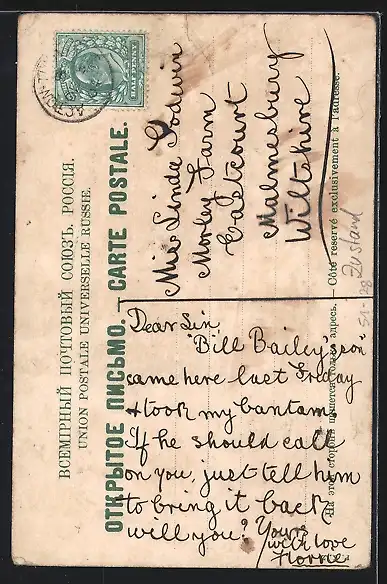 HALF PENNY
ACTON
ВСЕМІРНЫЙ ПОЧТОВЫЙ СОЮЗЪ. РОССІЯ.
UNION POSTALE UNIVERSELLE RUSSIE.
ОТКРЫТОЕ ПИСЬМО. CARTE POSTALE.
Miss Linda Godwin
Morley Farm
Eastcourt
Malmesbury
Wiltshire
На этой сторонѣ пишется только адресъ.
Côté réservé exclusivement à l'adresse.
Zustand
Dear Lin,
"Bill Bailey's son"
came here last Friday
& took my bantam.
If he should call
on you, just tell him
to bring it back
will you? Yours
with love
Florrie